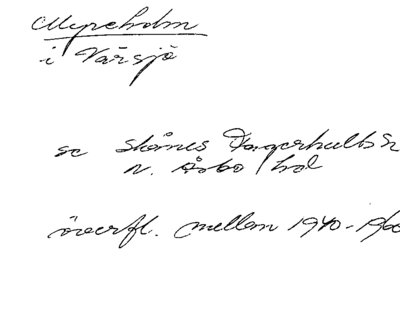 Myreholm
i Värsjö
se Skånes Fagerhults sn
n. Åsbo hd
överfl. mellem 1940-1960